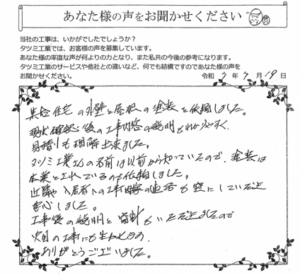 あなた様の声をお聞かせください
当社の工事は、いかがでしたでしょうか？
タツミ工業では、お客様の声を募集しています。
あなた様の率直な声が何よりの力となり、また私共の今後の参考になります。
タツミ工業のサービスや他社との違いなど、何でも結構ですのであなた様の声を
お聞かせください。 令和 7年 7月 19日
共同住宅の外壁と屋根の塗装を依頼しました。
現状確認後の工事内容の説明もわかりやすく、
見積りも理解出来ました。
タツミ工業さんの名前は以前から知っているので、塗装は
本業とされているので依頼しました。
近隣や入居者への工事の連絡も密にしていただき
安心しました。
工事後の説明と資料もいただきましたので
次回の工事にも
ありがとうございました。